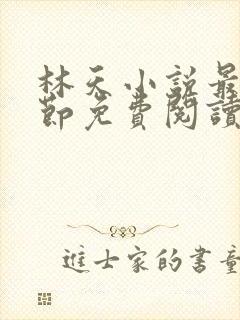 林天小說最
節免費閱讀
進士家的書童